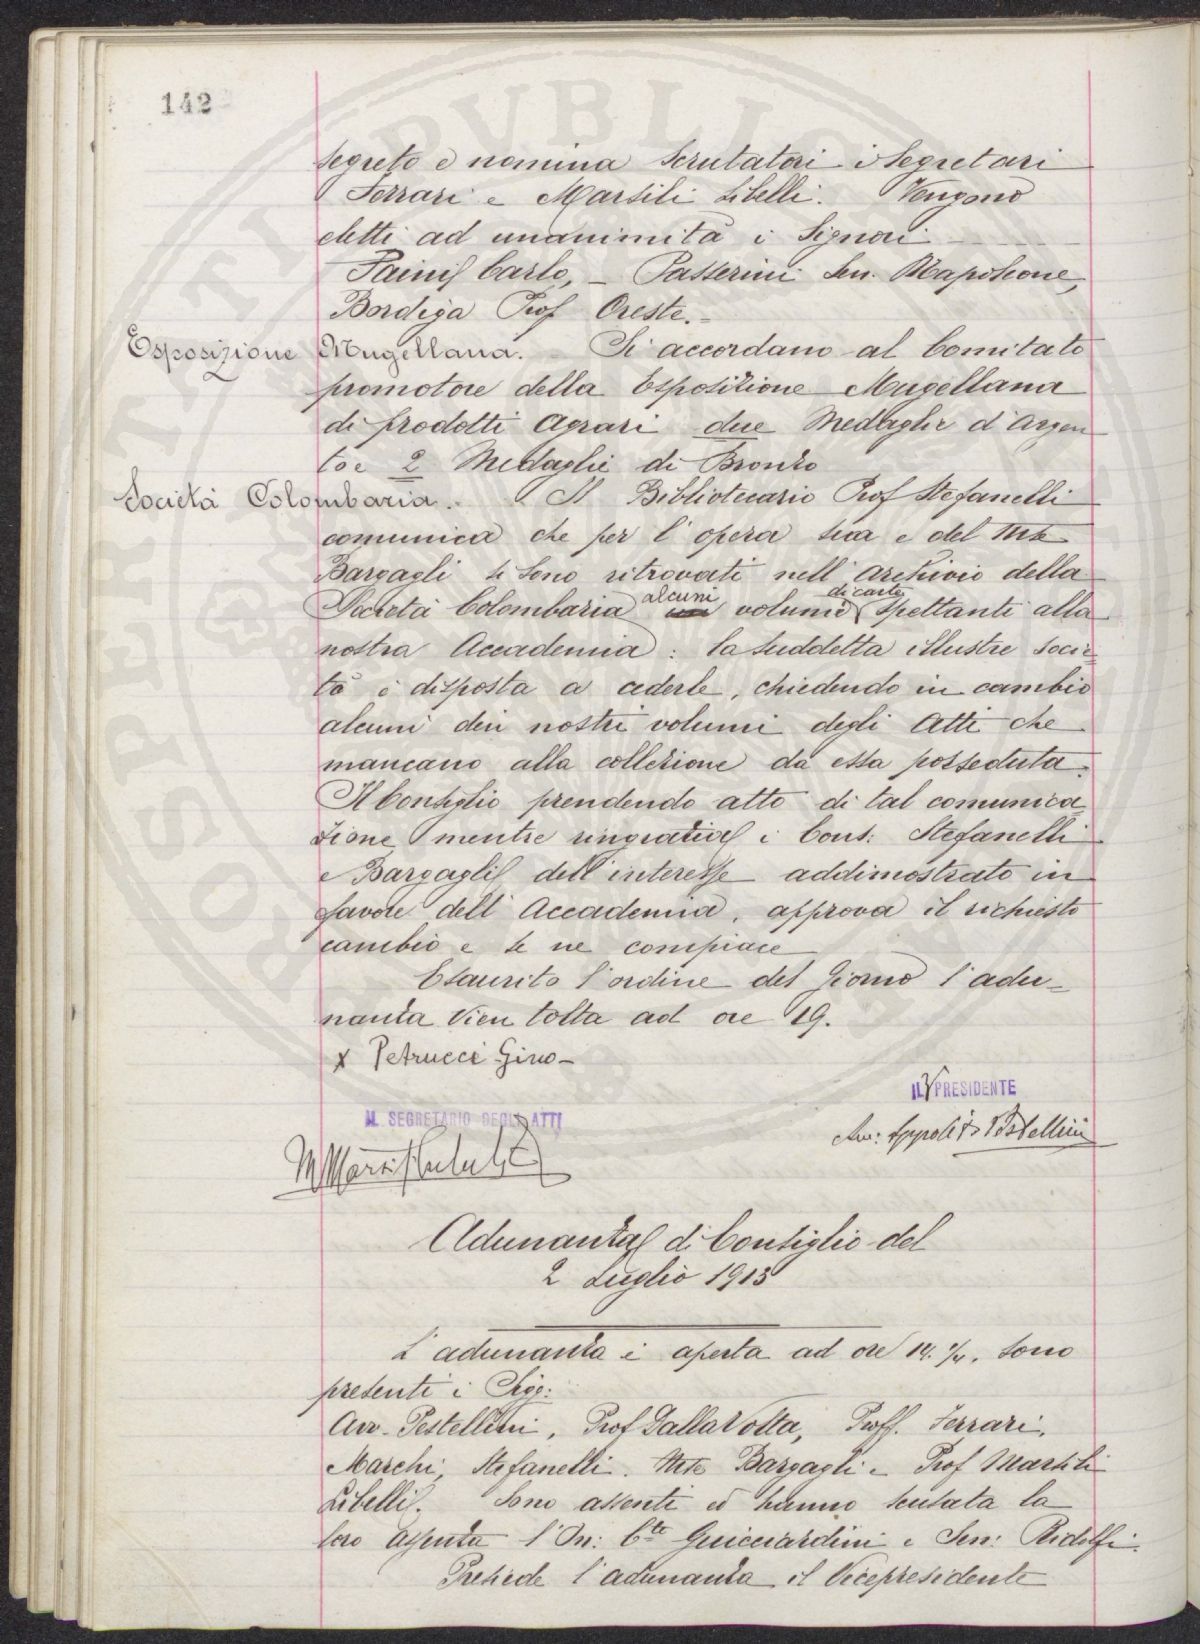 142
segreto e nomina scrutatori i Segretari
Ferrari e Marsili Libelli. Vengono
eletti ad unanimità i Signori
Carlo, Passerini Sen. Napoleone,
Bordiga Prof Oreste.
Esposizione Mugellana. Si accordano al Comitato
promotore della Esposizione Mugellana
di prodotti agrari due Medaglie d'argen
to e 2 Medaglie di Bronzo
Società Colombaria. Il Bibliotecario Prof Stefanelli
comunica che per l'opera sua e del Mse
Bargagli si sono ritrovati nell'archivio della
Società Colombaria alcuni volumi di carte spettanti alla
nostra Accademia: la suddetta illustre socie=
tà è disposta a cederle, chiedendo in cambio
alcuni dei nostri volumi degli Atti che
mancano alla collezione da essa posseduta.
Il Consiglio prendendo atto di tal comunica=
zione, mentre ringrazia i Cons: Stefanelli
e Bargagli dell'interesse addimostrato in
favore dell'Accademia, approva il richiesto
cambio e se ne compiace
Esaurito l'ordine del Giorno l'adu=
nanza vien tolta ad ore 19.
x Petrucci Gino
IL V PRESIDENTE
IL SEGRETARIO DEGLI ATTI
Avv: Ippolito Pestellini
Adunanza di Consiglio del
2 Luglio 1913
L'adunanza è aperta ad ore 14. 1/4. Sono
presenti i Sigg:
Avv. Pestellini, Prof Dalla Volta, Proff. Ferrari,
Marchi, Stefanelli. Mse Bargagli e Prof Marsili
Libelli. Sono assenti ed hanno scusata la
loro assenza l'On: Cte Guicciardini e Sen: Ridolfi.
Presiede l'adunanza il Vicepresidente